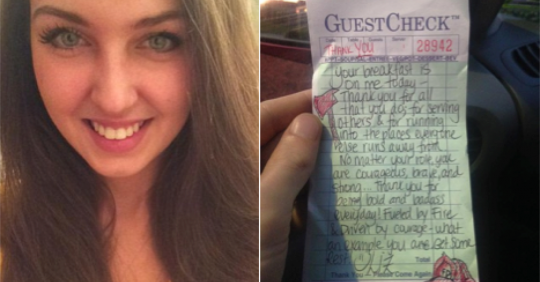 GUESTCHECK™
Date Table Guests Server
THANK YOU 28942
Your breakfast is
on me today -
Thank you for all
that you do for serving
others & for running
into the places everyone
else runs away from.
No matter your role you
are courageous, brave, and
strong. Thank you for
being bold and badass
everyday! Fueled by Fire
Driven by courage - what
an example you are. Get some
Rest Liz
Total
Thank You - Please Come Again